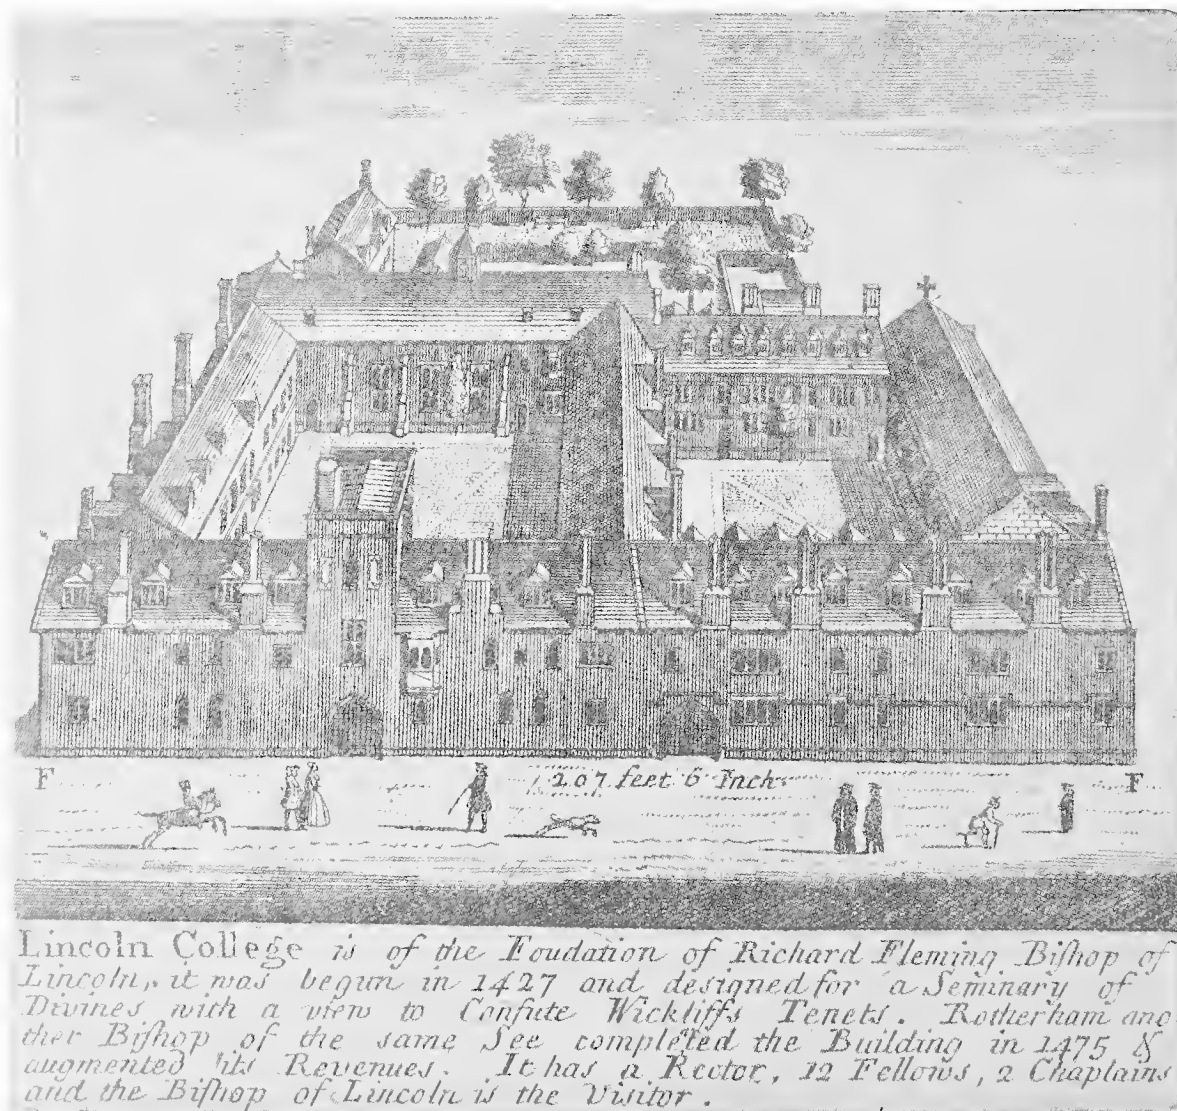 F 207 feet 6 Inch F
Lincoln College is of the Foudation of Richard Fleming Biſhop of
Lincoln, it was begun in 1427 and designed for a Seminary of
Divines with a view to Confute Wickliffs Tenets. Rotherham ano
ther Biſhop of the same See completed the Building in 1475 &
augmented its Revenues. It has a Rector, 12 Fellows, 2 Chaplains
and the Biſhop of Lincoln is the Visitor.